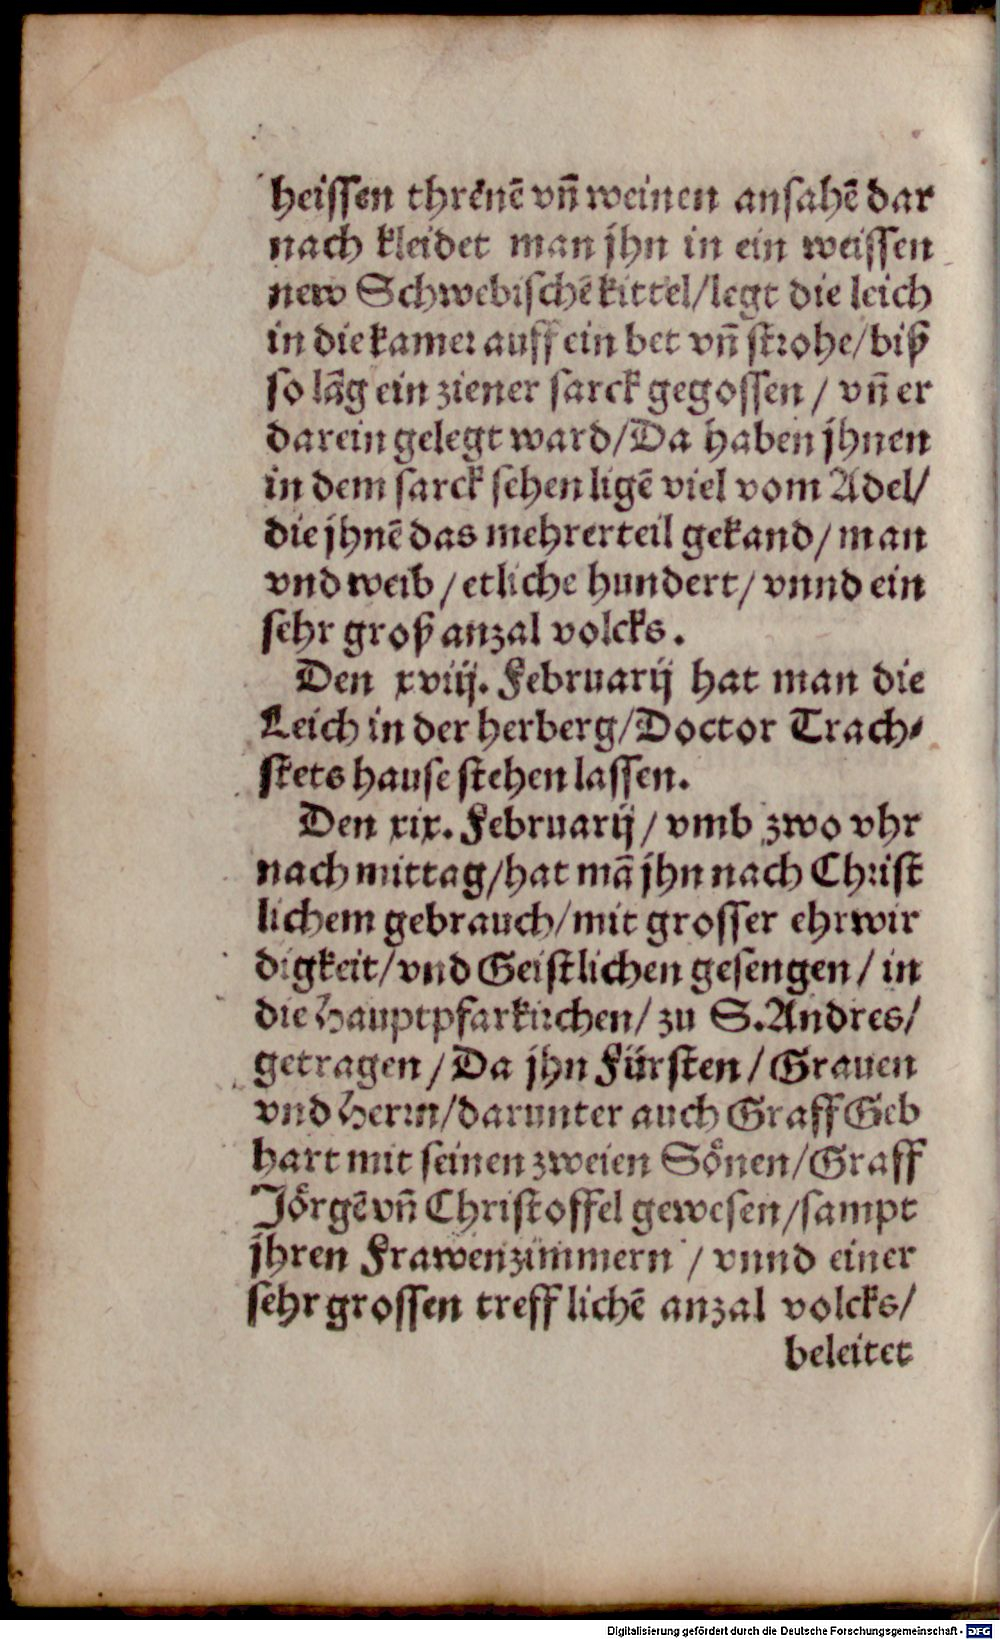 heissen thrēnē vñ weinen ansahē dar
nach kleidet man jhn in ein weissen
new Schwebischē kittel/legt die leich
in die kamer auff ein bet vñ strohe/biß
so lāg ein ziener sarck gegossen / vñ er
darein gelegt ward/Da haben jhnen
in dem sarck sehen ligē viel vom Adel/
die jhnē das mehrerteil gekand/man
vnd weib/etliche hundert/vnnd ein
sehr groß anzal volcks.
Den xviij. Februarij hat man die
Leich in der herberg/Doctor Trach⸗
stets hause stehen lassen.
Den xix. Februarij / vmb zwo vhr
nach mittag/hat mā jhn nach Christ
lichem gebrauch/mit grosser ehrwir
digkeit/vnd Geistlichen gesengen / in
die Hauptpfarkirchen/ zu S.Andres/
getragen / Da jhn Fürsten / Grauen
vnd Herrn/darunter auch Graff Geb
hart mit seinen zweien Sönen/Graff
Jörgē vñ Christoffel gewesen/sampt
jhren Frawenzimmern / vnnd einer
sehr grossen treff lichē anzal volcks/
beleitet
Digitalisierung gefördert durch die Deutsche Forschungsgemeinschaft - DFG